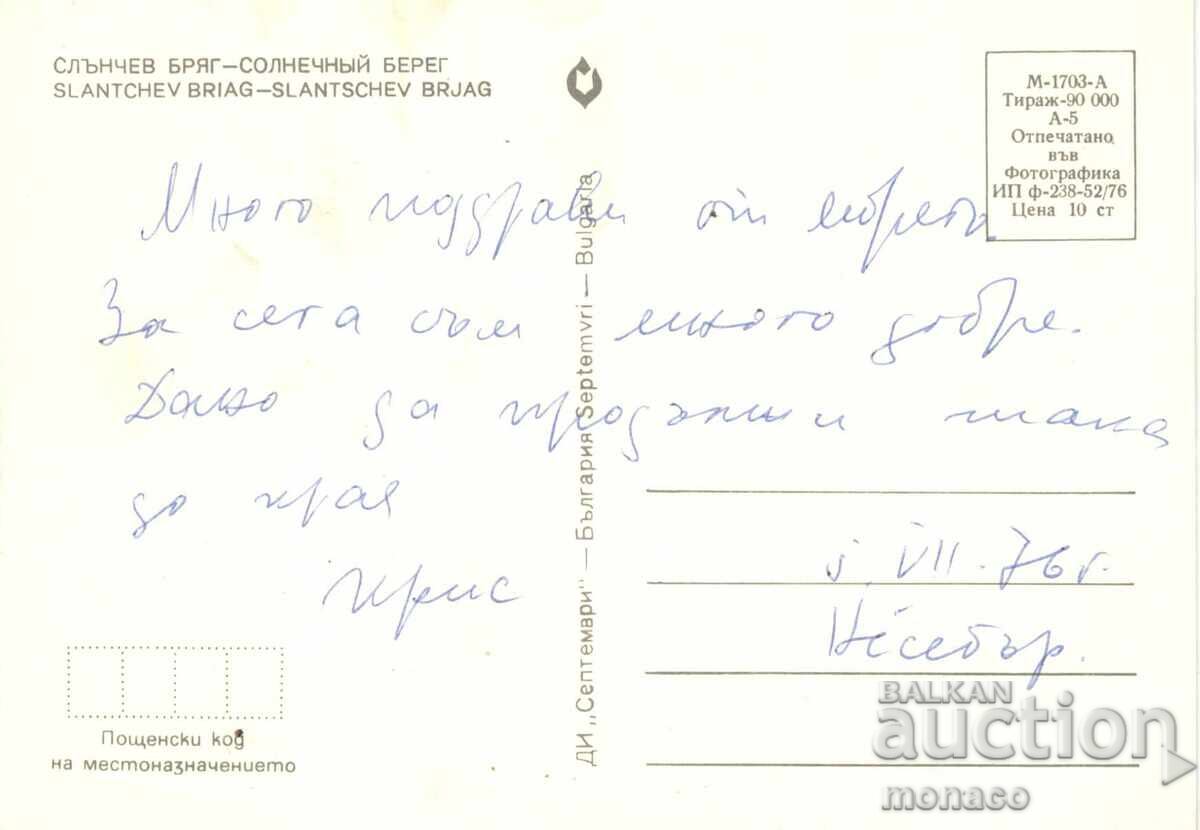 СЛЪНЧЕВ БРЯГ—СОЛНЕЧНЫЙ БЕРЕГ
SLANTCHEV BRIAG—SLANTSCHEV BRJAG
М-1703-А
Тираж-90 000
А-5
Отпечатано
във
Фотографика
ИП ф-238-52/76
Цена 10 ст
Много поздрави от морето
За сега съм много добре.
Дано да продължи така
до края
Крис
ДИ „Септември" — България Septemvri — Bulgaria
VII. 76 г.
Несебър.
Пощенски код
на местоназначението
BALKAN
auction
monaco